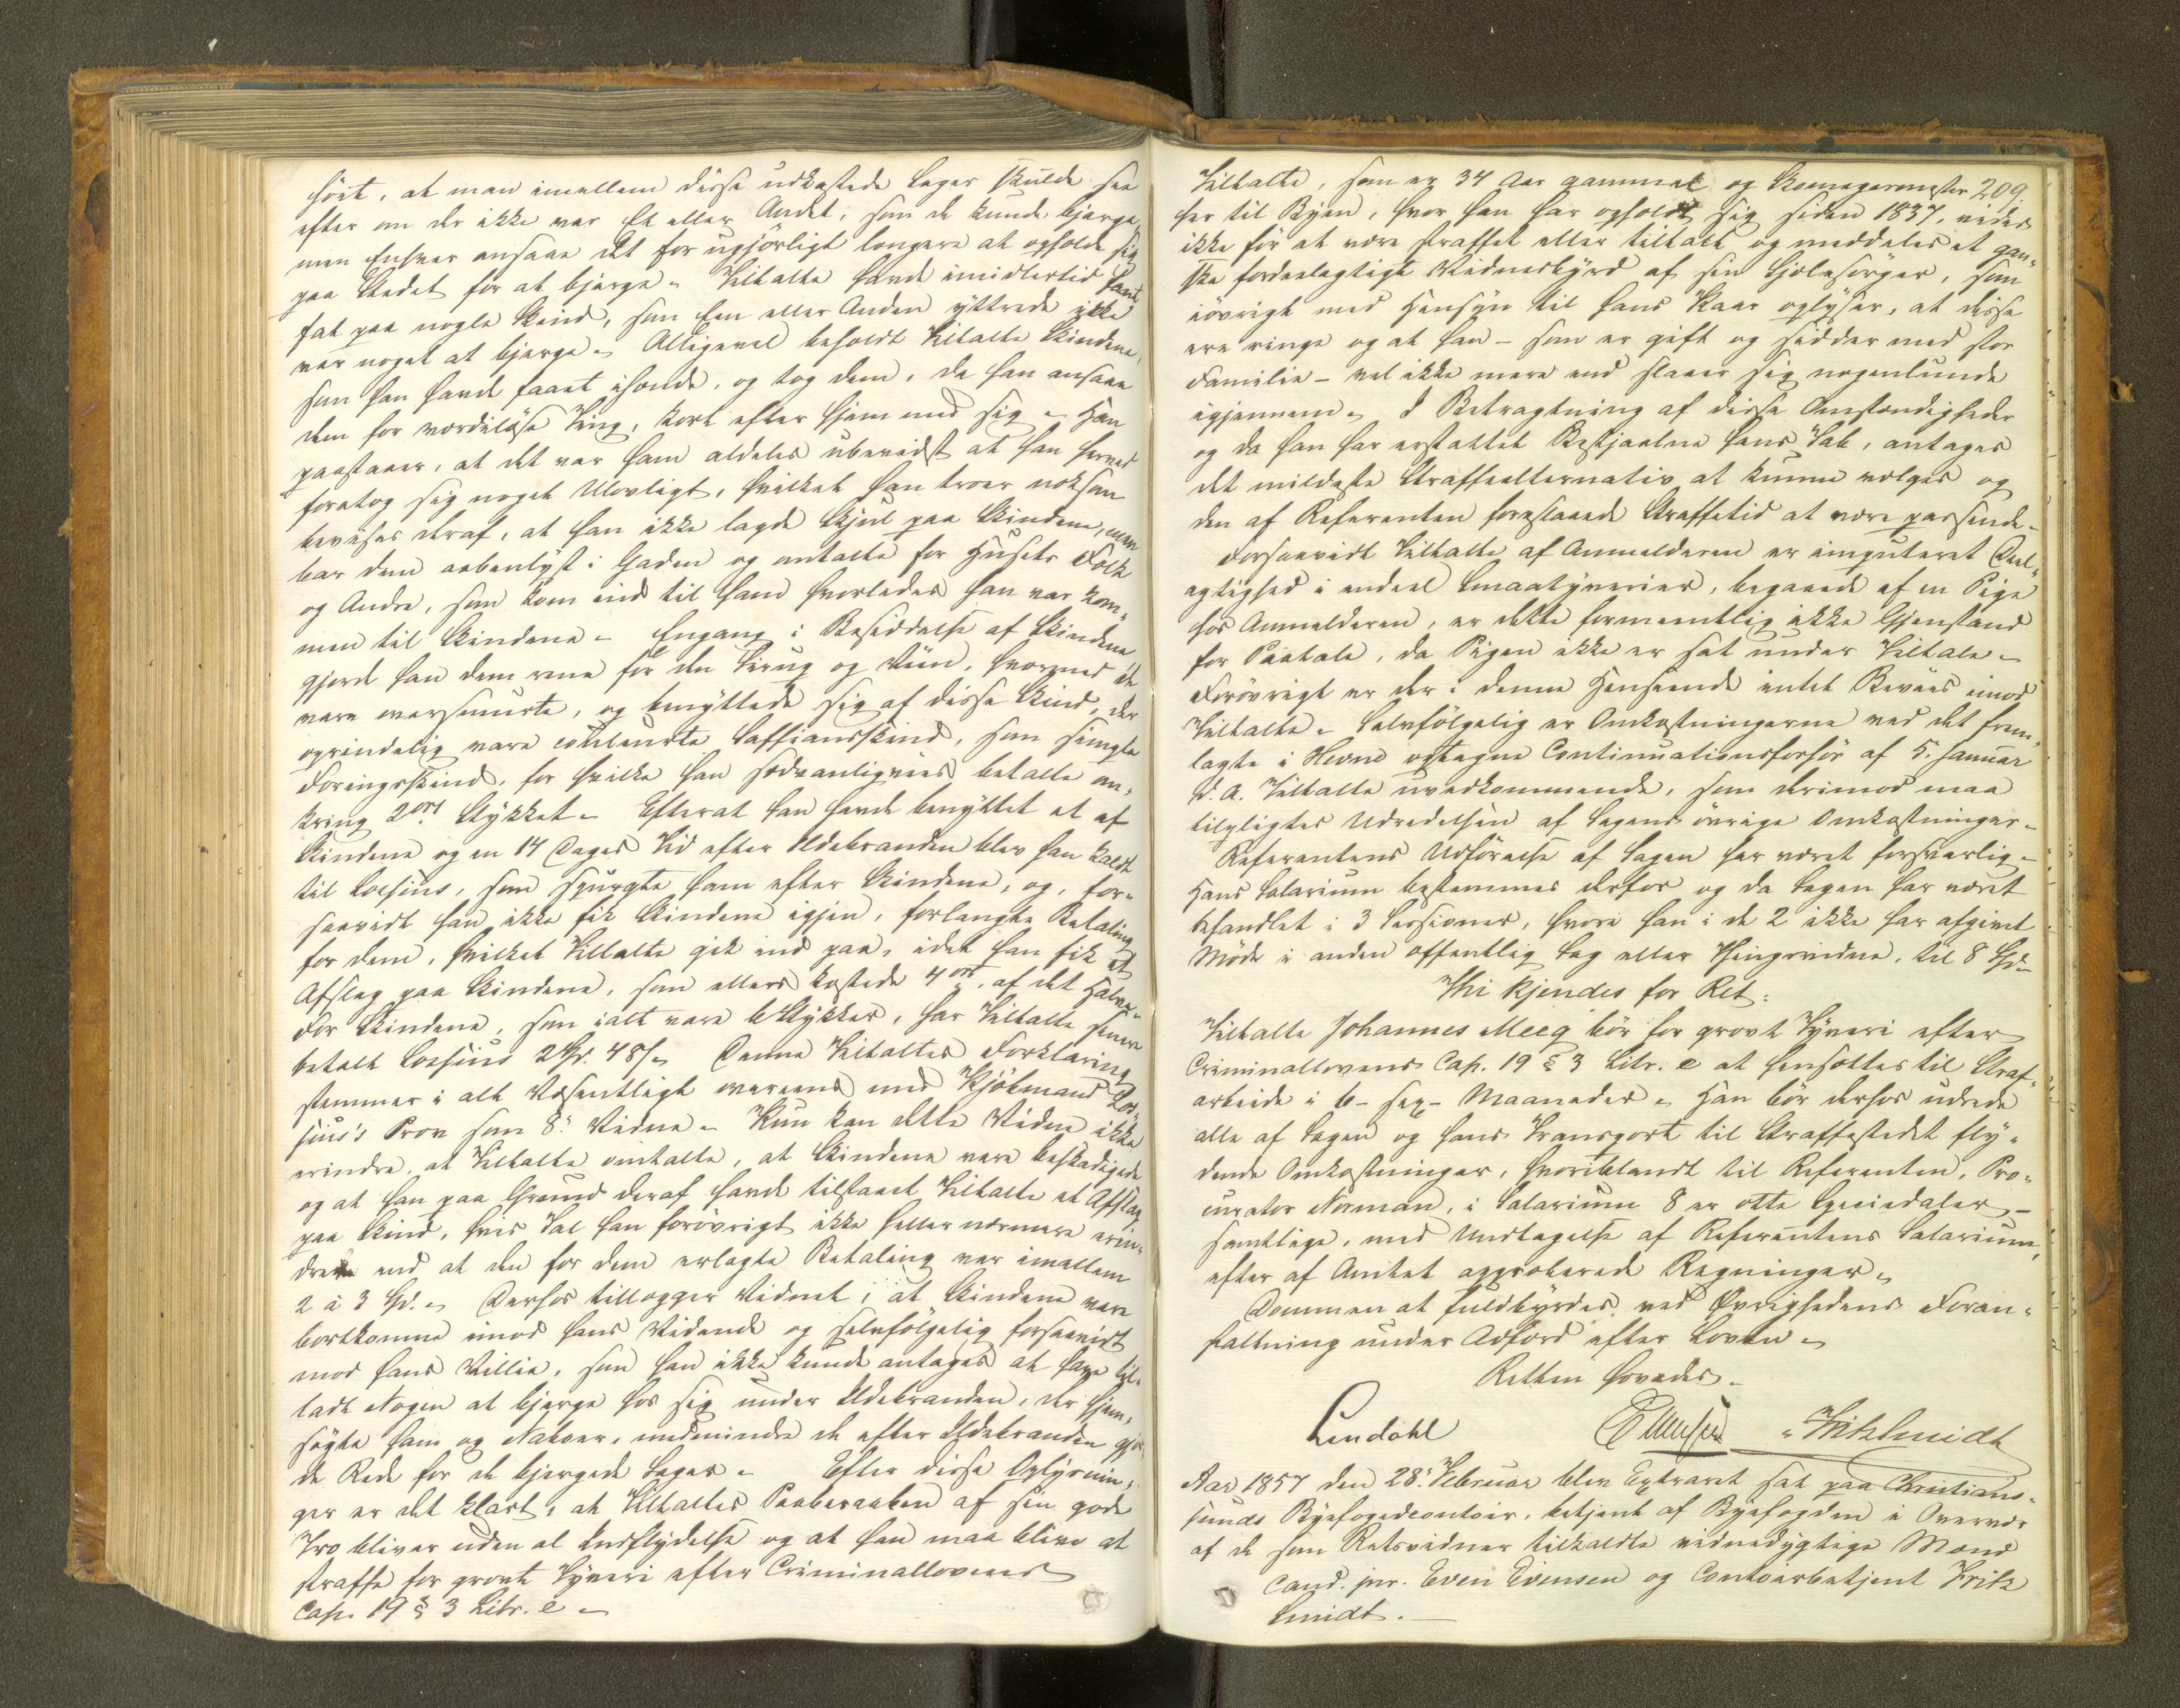 hört, at man imellem disse udkastede Sager skulde see
efter om der ikke var Et eller Andet, som de kunde bjerge,
men Enhver ansaae det for ugjörligt længere at opholde sig
paa Stedet for at bjerge. Tiltalte havde imidlertid fant
fat paa nogle Skind, som Een eller Anden yttrede ikke
var noget at bjerge. Alligevel beholdt Tiltalte Skindene,
som han havde faaet ihænde, og tog dem, da han ansaae
dem for værdilöse Ting, kort efter hjem med sig. Han
paastaaer, at det var ham aldeles ubevidst at han herved
foretog sig noget Ulovligt, hvilket han troer noksom
bevises deraf, at han ikke lagde Skjul paa Skindene, men
bar dem aabenlyst i Gaden og omtalte for Husets Folk
og Andre, som kom ind til ham hvorledes han var kom-
men til Skindene. Engang i Besiddelse af Skindene
gjorde han dem rene for den Sirup og Viin, hvormed de
vare oversmurte, og benyttede sig af disse Skind, der
oprindelig vare couleurte Saffiansskind, som simple
Foringsskind, for hvilke han sædvanligviis betalte om-
kring 2 ort Stykket. Efterat han havde benyttet et af
Skindene og en 14 Dages Tid efter Ildebranden blev han kaldt
til Lossius, som spurgte ham efter Skindene, og, for-
saavidt han ikke fik Skindene igjen, forlangte Betaling
for dem, hvilket Tiltalte gik ind paa, idet han fik et
Afslag paa Skindene, som ellers kostede 4 ort, af det Halve.
For Skindene, som ialt vare 6 Stykker, har Tiltalte senere
betalt Lossius 2 Spd. 48 s. Denne Tiltaltes Forklaring
stemmer i alt Væsentligt overeens med Kjöbmand Los-
sius's Prov som 8de Vidne. Kun kan dette Vidne ikke
erindre, at Tiltalte omtalte, at Skindene vare beskadigede
og at han paa Grund deraf havde tilstaaet Tiltalte et Afslag
paa Skind, hvis Tal han forövrigt ikke heller nærmere erin-
drer end at den for dem erlagte Betaling var imellem
2 à 3 Spd. Derhos tillægger Vidnet, at Skindene vare
bortkomne imod hans Vidende og selvfölgelig forsaavidt
mod hans Villie, som han ikke kunde antages at have til-
ladt Nogen at bjerge hos sig under Ildebranden, der hjem-
sögte ham og Naboer, medmindre de efter Ildebranden gjor-
de Rede for de bjergede Sager. Efter disse Oplysnin-
ger er det klart, at Tiltaltes Paaberaaben af sin gode
Tro bliver uden al Indflydelse og at han maa blive at
straffe for grovt Tyveri efter Criminallovens
Cap. 19 § 3 Litr. e.
Tiltalte, som er 34 Aar gammel og Skomagermester 209.
her til Byen, hvor han har opholdt sig siden 1837, vides
ikke för at være straffet eller tiltalt og meddeles et gan-
ske fordeelagtigt Vidnesbyrd af sin Sjælesörger, som
iövrigt med Hensyn til hans Kaar oplyser, at disse
ere ringe og at han – som er gift og sidder med stor
Familie – vel ikke mere end slaaer sig nogenlunde
igjennem. I Betragtning af disse Omstændigheder
og da han har erstattet Bestjaalne hans Tab, antages
det mildeste Straffealternativ at kunne vælges og
den af Referenten foreslaaede Straffetid at være passende.
Forsaavidt Tiltalte af Anmelderen er imputeret Deel-
agtighed i endeel Smaatyverier, begaaede af en Pige
hos Anmelderen, er dette formeentlig ikke Gjenstand
for Paatale, da Pigen ikke er sat under Tiltale.
Forövrigt er der i denne Henseende intet Beviis imod
Tiltalte. Selvfölgelig er Omkostningerne ved det frem-
lagte i Hevne optagne Continuationsforhör af 5. Januar
d. A. Tiltalte uvedkommende, som derimod maa
tilpligtes Udredelsen af Sagens övrige Omkostninger.
Referentens Udförelse af Sagen har været forsvarlig.
Hans Salarium bestemmes derfor og da Sagen har været
behandlet i 3 Sessioner, hvoraf han i de 2 ikke har afgivet
Möde i anden offentlig Sag eller Thingsvidne, til 8 Spd.
Thi kjendes for Ret:
Tiltalte Johannes Meeg bör for grovt Tyveri efter
Criminallovens Cap. 19 § 3 Litr. e at hensættes til Straf-
arbeide i 6 – sex – Maaneder. Han bör derhos udrede
alle af Sagen og hans Transport til Straffestedet fly-
dende Omkostninger, hvoriblandt til Referenten, Pro-
curator Norman, i Salarium 8 er otte Speciedaler –
samtlige, med Undtagelse af Referentens Salarium,
efter af Amtet approberede Regninger.
Dommen at fuldbyrdes ved Øvrighedens Foran-
staltning under Adfærd efter Loven.
Retten hævedes.
Lindahl EEvensen Fritz Smidt
Aar 1857 den 28. Februar blev Extraret sat paa Christians-
sunds Byefogedcontoir, betjent af Byefogden i Overvær
af de som Retsvidner tilkaldte vidnedygtige Mænd
Cand. jur. Even Evensen og Contoirbetjent Fritz
Smidt.